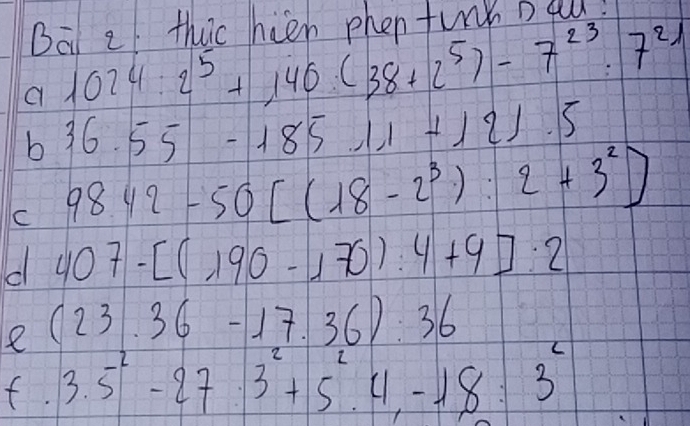 Bài 2: thực hiện phép tính sau:
a 1024 : 2⁵ + 140 : (38 + 2⁵) - 7²³ : 7²¹
b 36 . 55 - 185 . 11 + 121 . 5
c 98.42 - 50 [(18 - 2³) : 2 + 3²]
d 407 - [(190 - 170) : 4 + 9] : 2
e (23 . 36 - 17 . 36) : 36
f. 3.5² - 27 : 3² + 5² . 4 - 18 : 3²